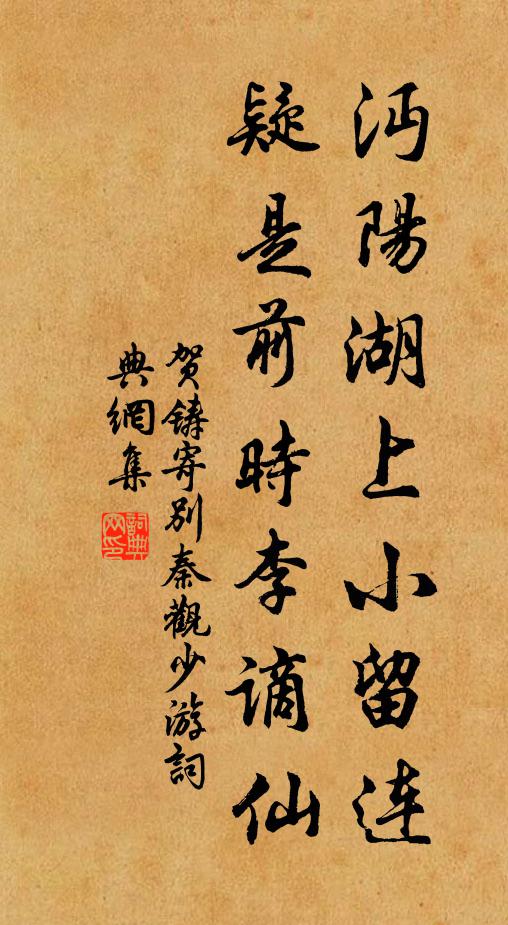 沔陽湖上小留連
疑是前時李謫仙
贺鑄寄别秦觀少游詞
典網集
詞典
网印